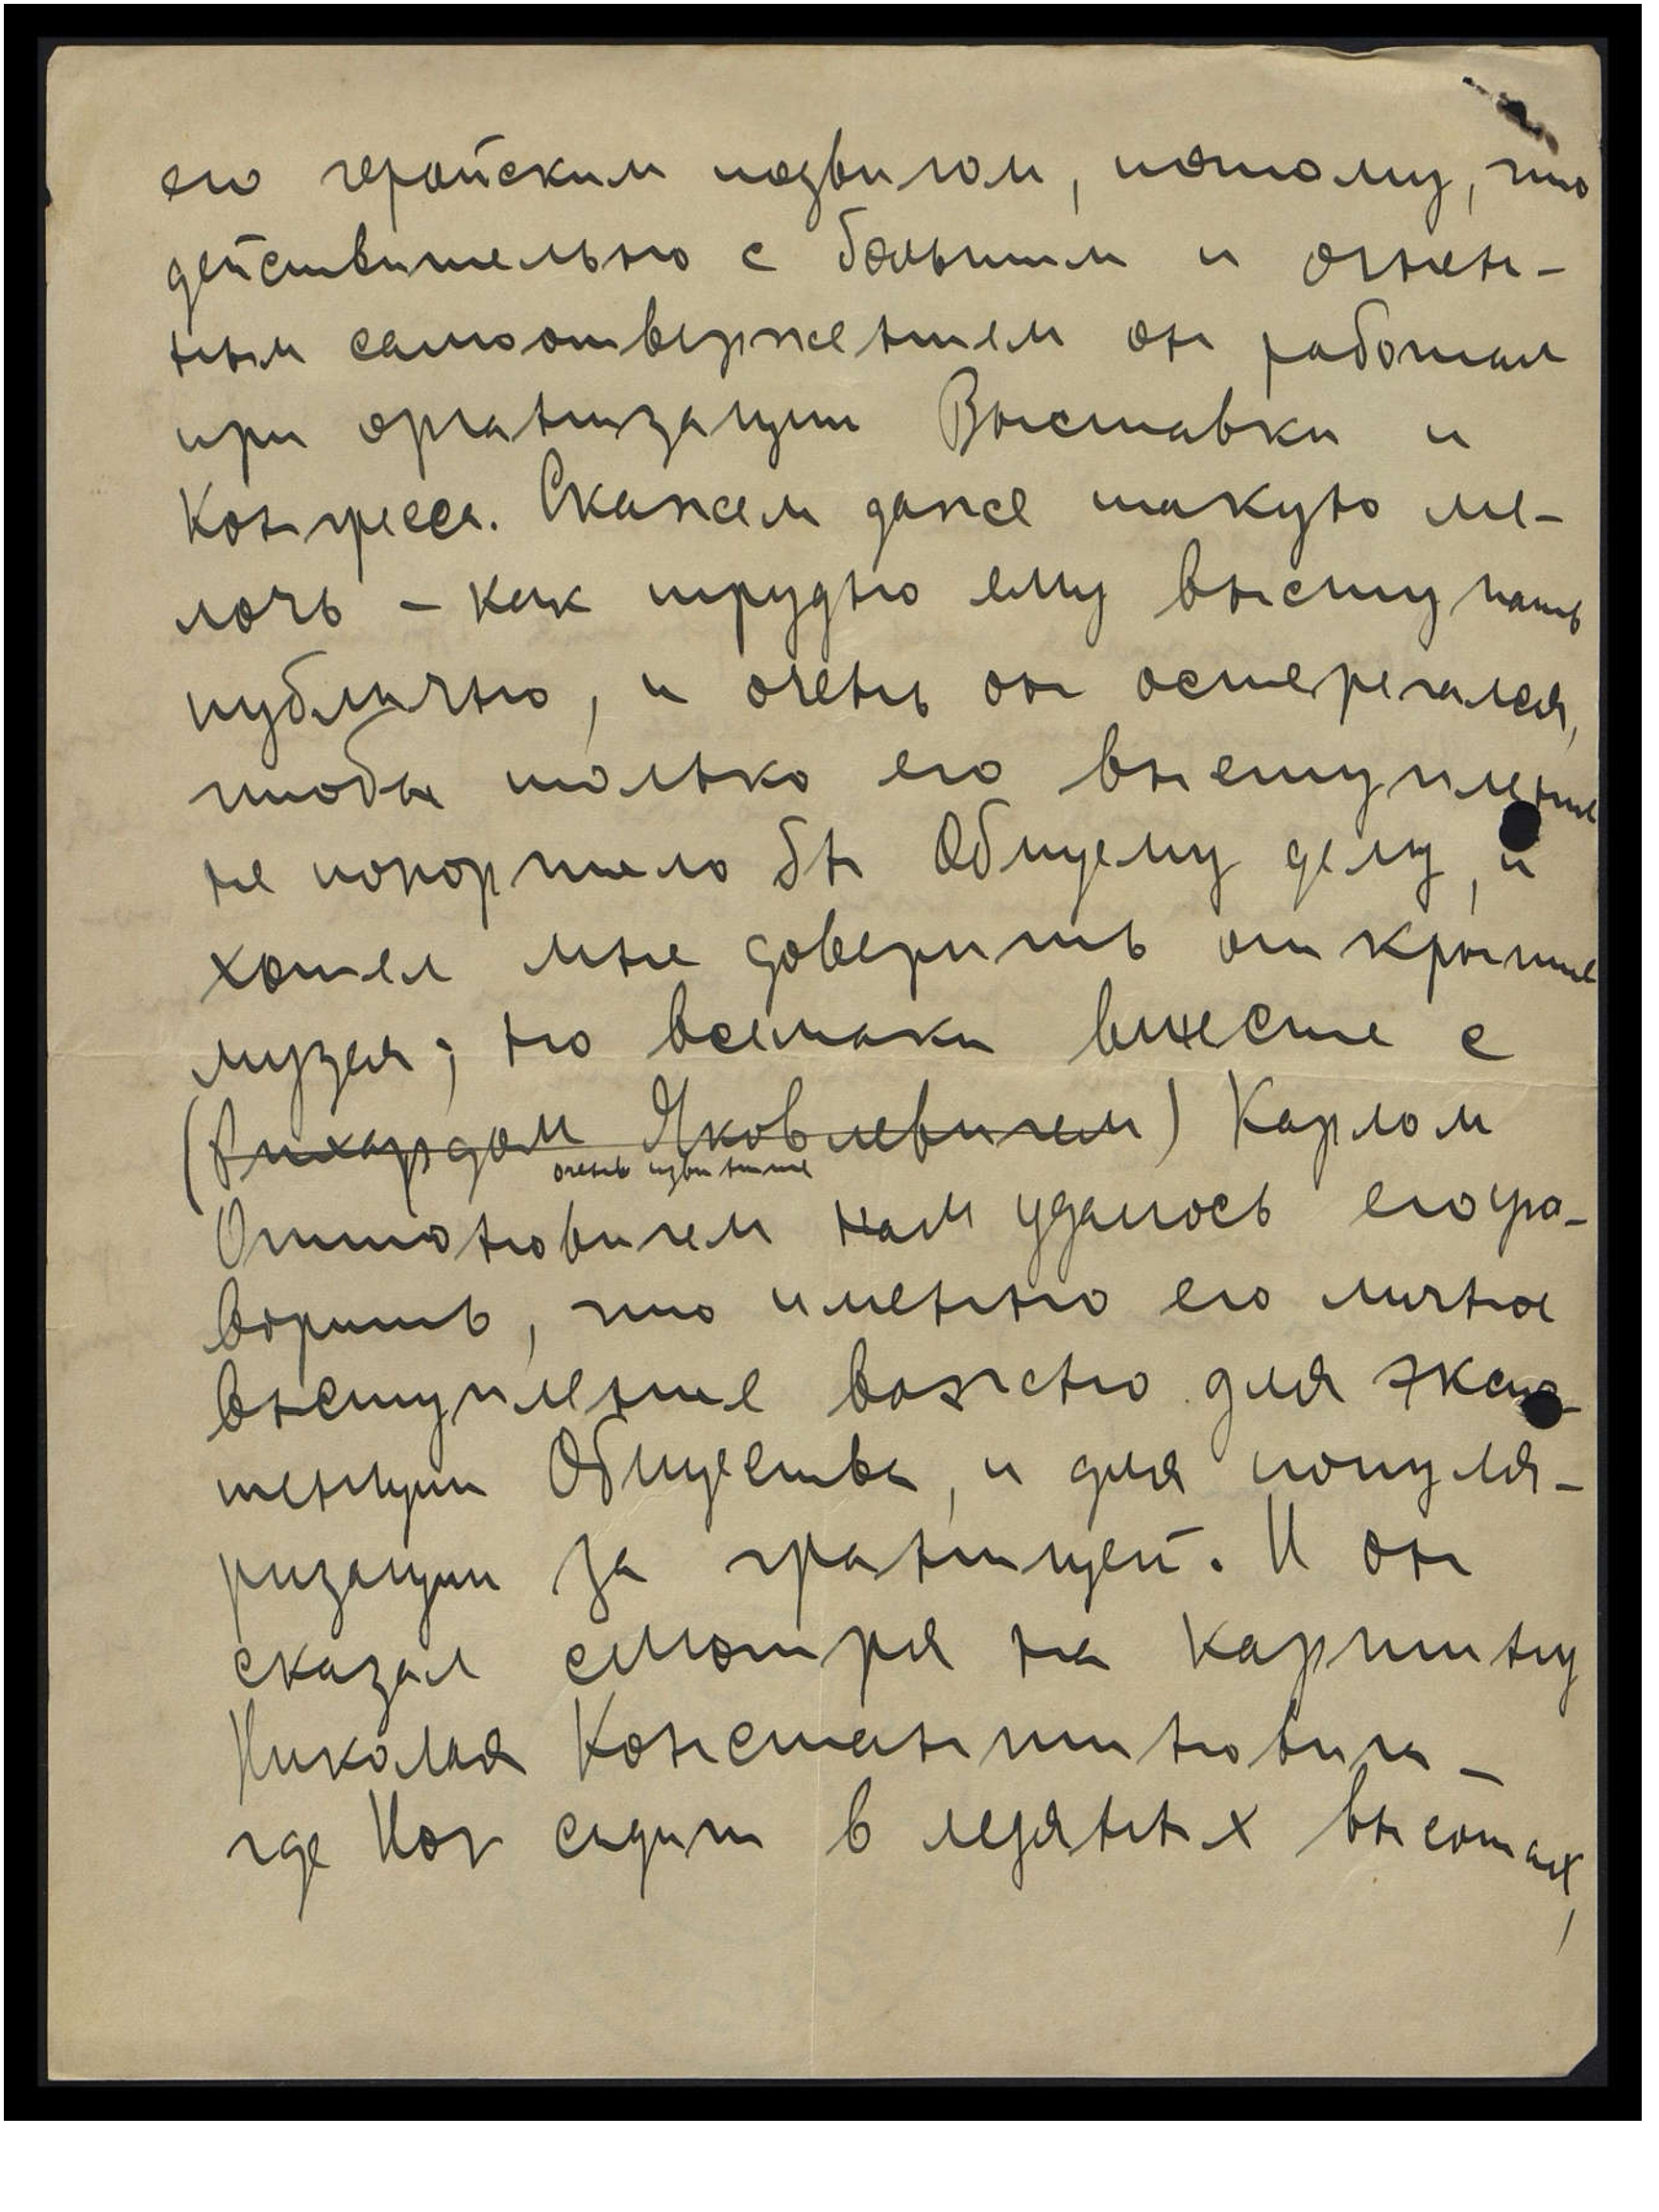 его геройским подвигом, потому, что
действительно с большим и огнен-
ным самоотвержением он работал
при организации Выставки и
Конгресса. Скажем даже такую ме-
лочь – как трудно ему выступать
публично, и очень он остерегался,
чтобы только его выступление
не попортило бы Общему делу, и
хотел мне доверить открытие
музея; но всетаки вместе с
(Рихардом Яковлевичем) Карлом
очень извините
Оттоновичем нам удалось егоуго-
ворить, что именно его личное
выступление важно для экзис-
тенции Общества, и для популя-
ризации за границей. И он
сказал смотря на картину
Николая Константиновича –
где Йог сидит в ледяных высотах,